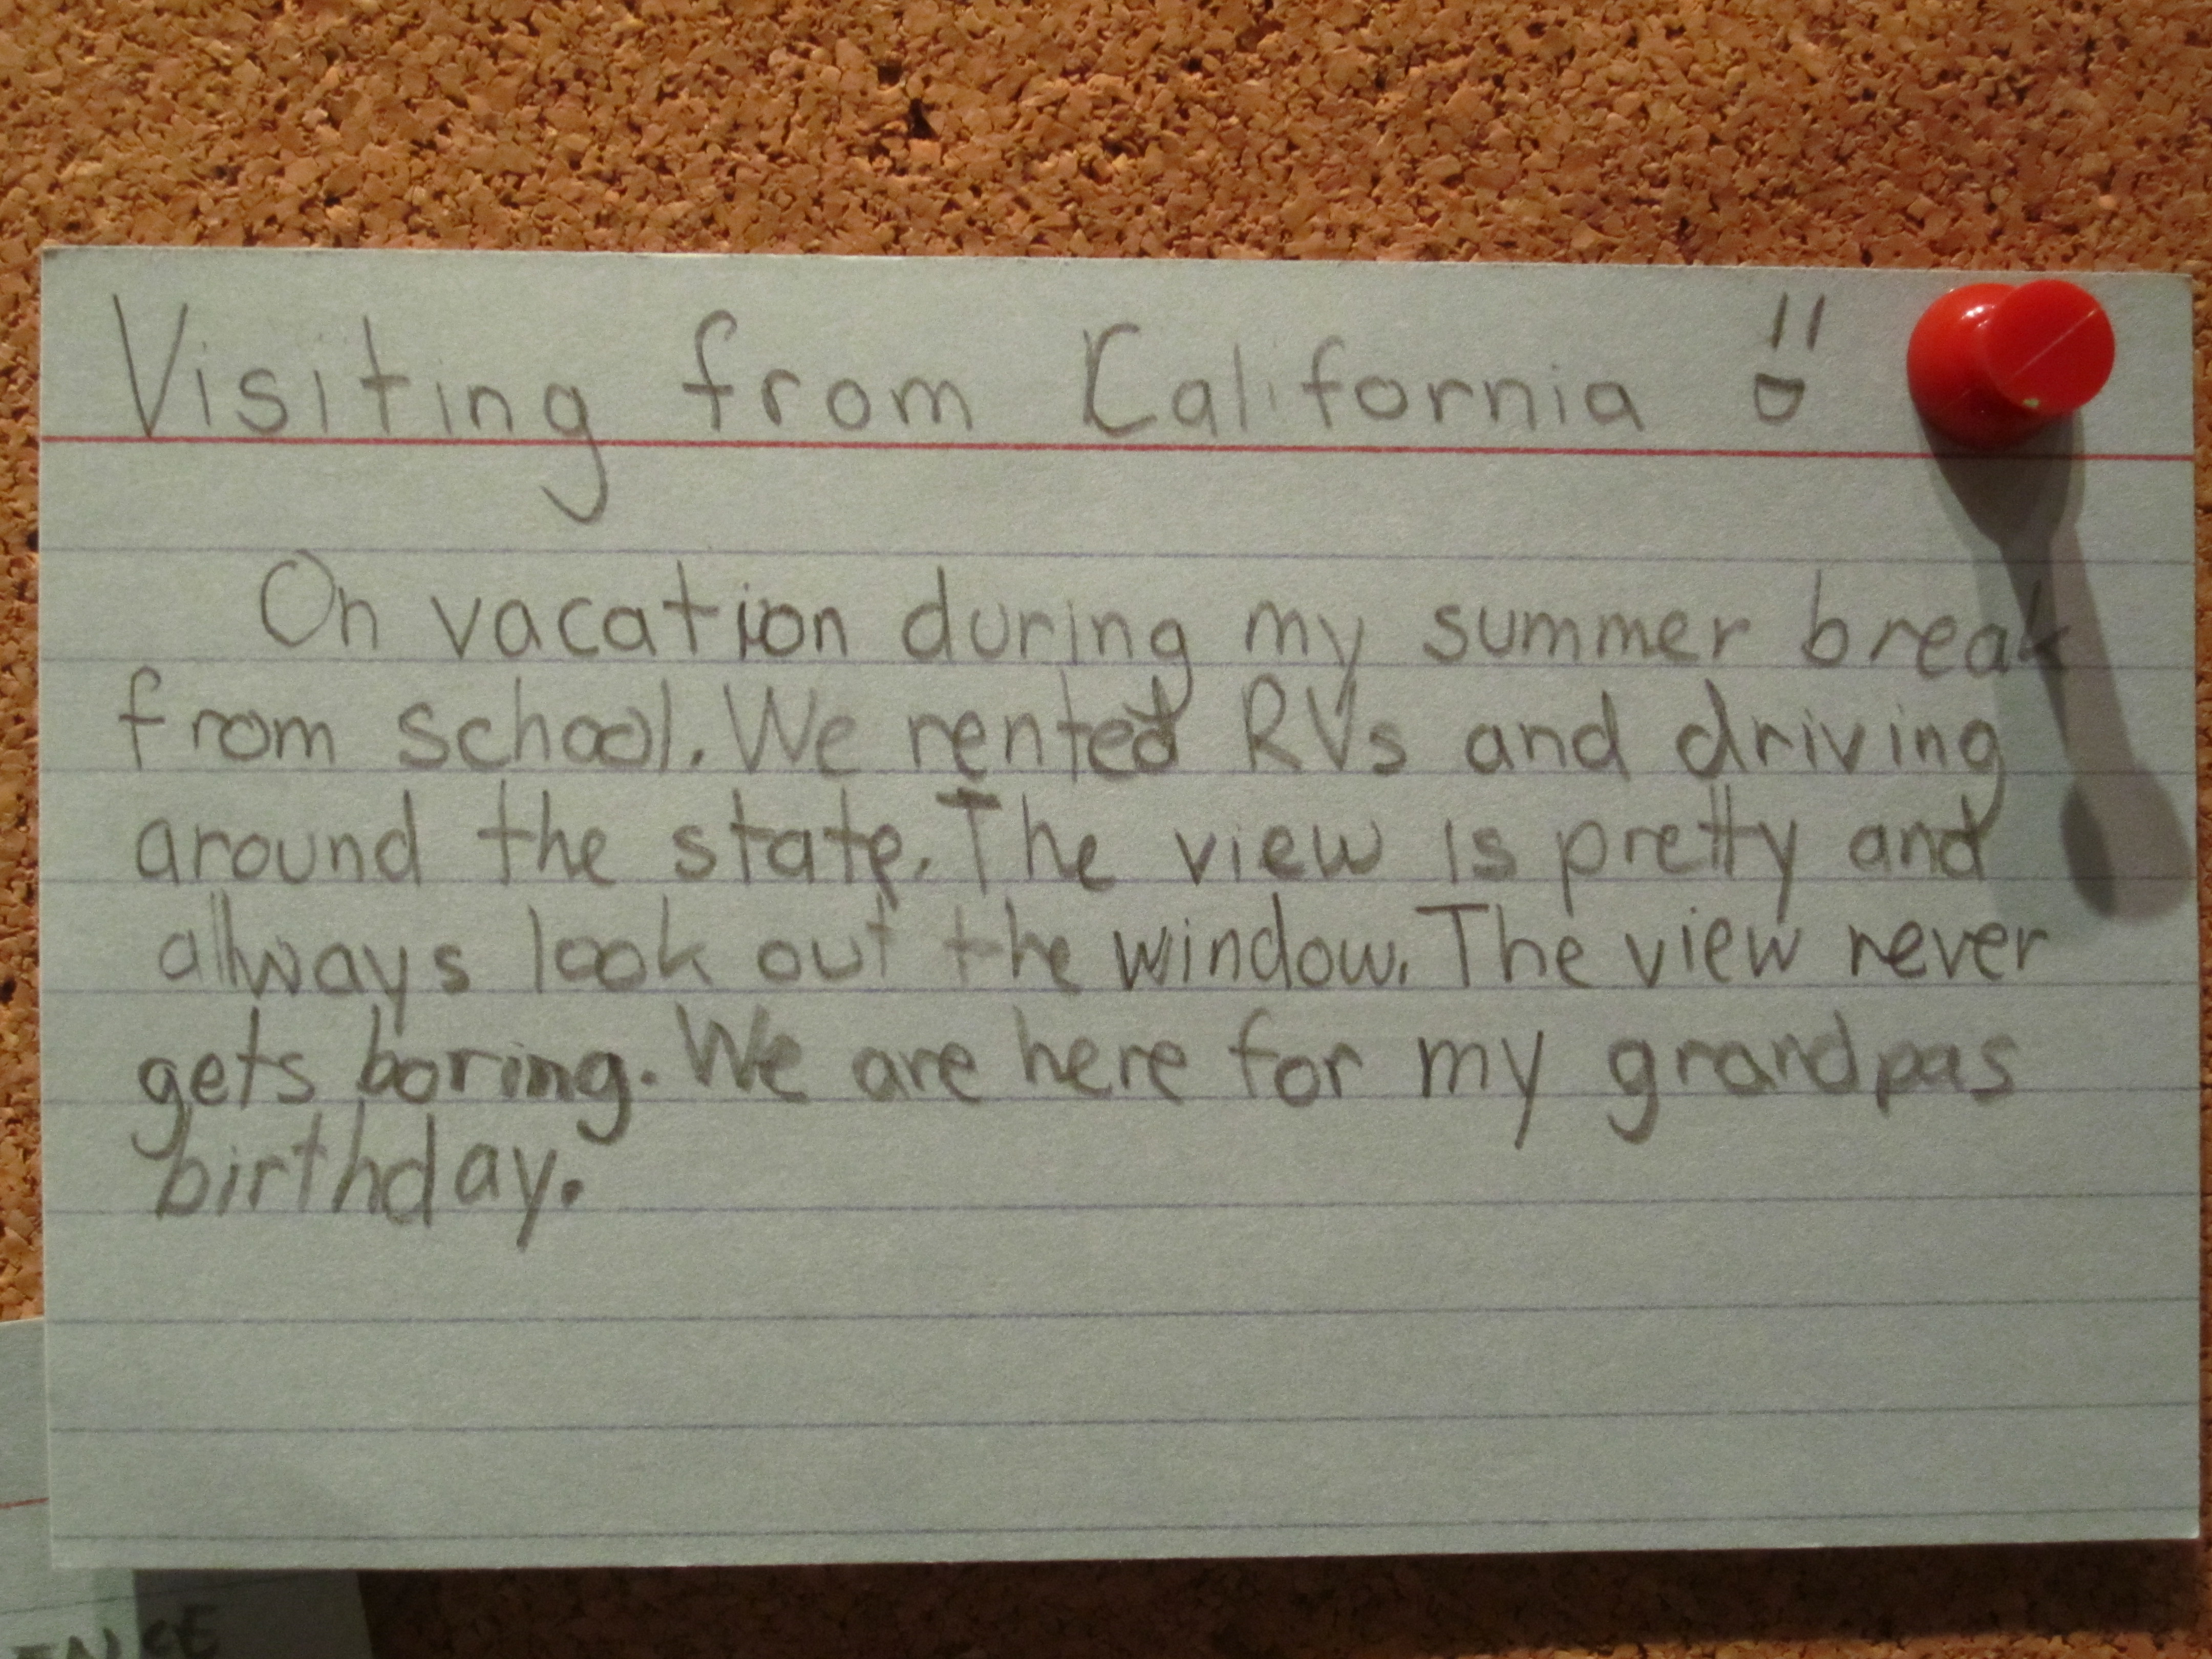 Visiting from California
On vacation during my summer break
from school. We rented RVs and driving
around the state. The view is pretty and
allways look out the window. The view never
gets boring. We are here for my grandpas
birthday.